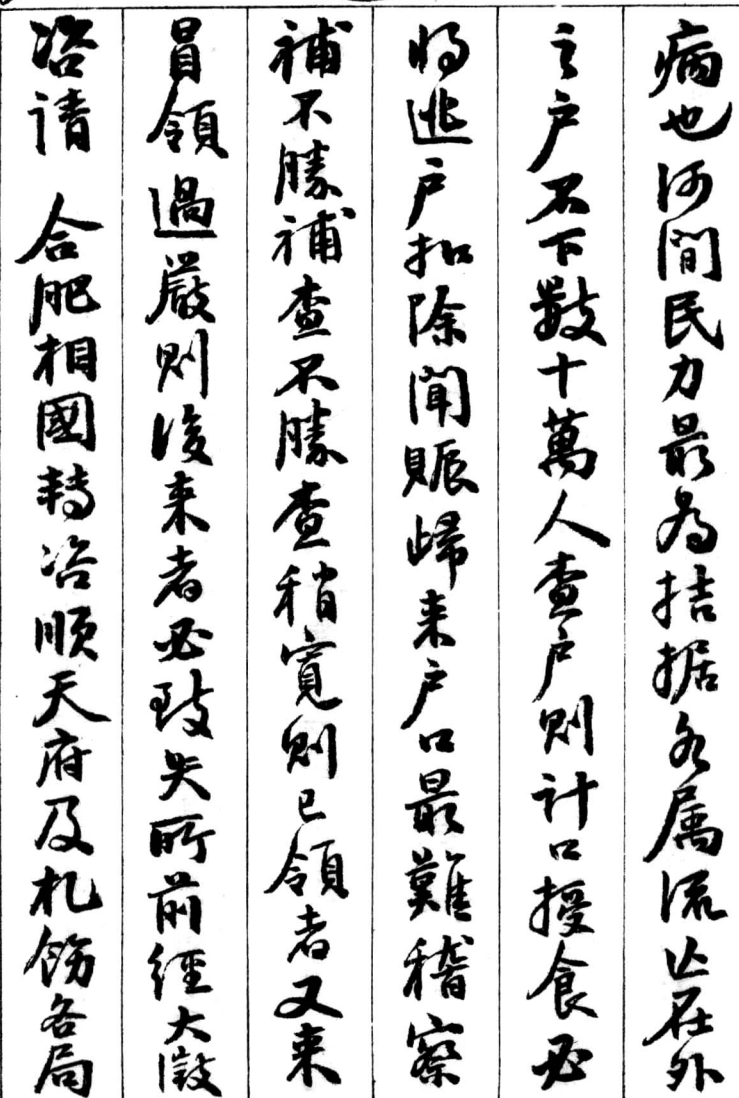 病也河間民力最為拮据各属流亡在外
之户不下數十萬人查户則計口授食必
将逃户扣除聞賑歸来户口最難稽察
補不勝補查不勝查稍寛則已領者又来
冒領過嚴則後来者必致失所前經大澂
咨请 合肥相國轉咨順天府及札飭各局